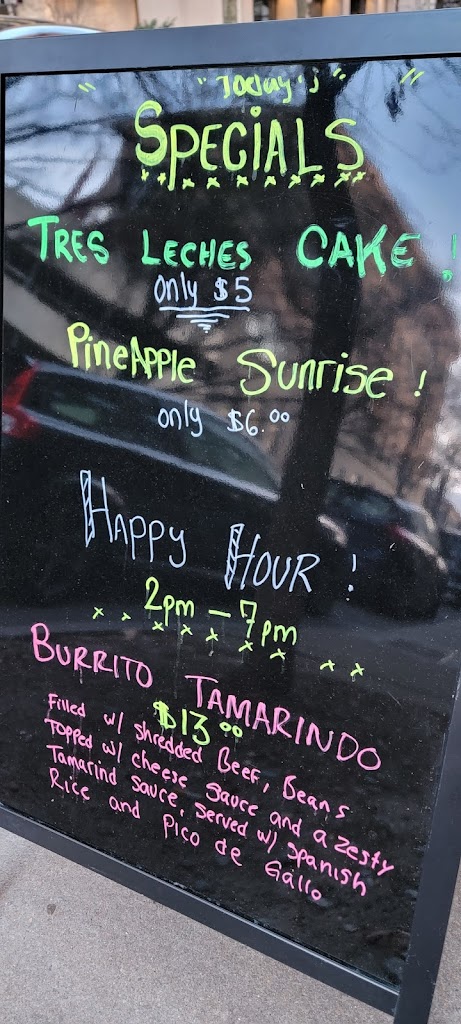 "Today's"
SPECIALS
TRES LECHES CAKE!
only $5
PineAPPle Sunrise!
only $6.00
HAPPY HOUR!
2pm - 7pm
BURRITO TAMARINDO
$13.00
Filled w/ shredded Beef, Beans
Topped w/ cheese sauce and a zesty
Tamarind sauce, served w/ Spanish
Rice and Pico de Gallo